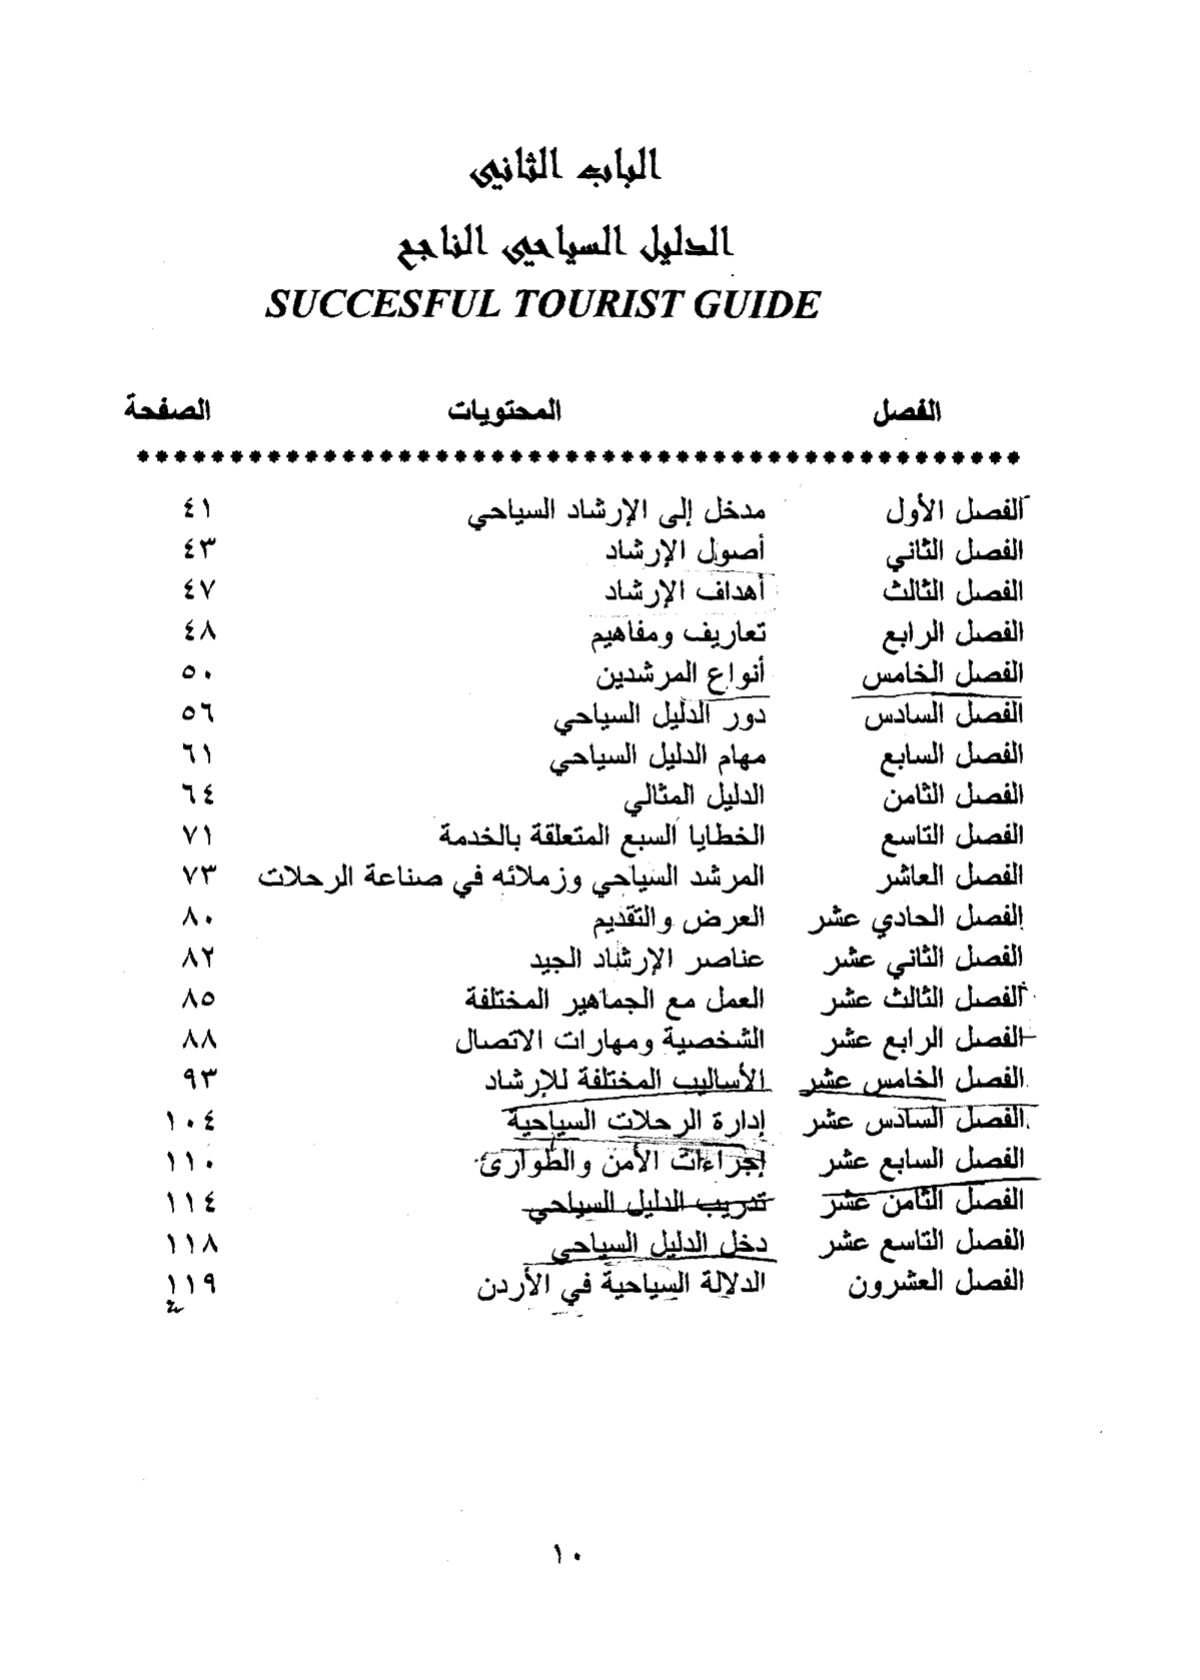 الباب الثاني
الدليل السياحي الناجح
SUCCESFUL TOURIST GUIDE
الفصل المحتويات الصفحة
الفصل الأول مدخل إلى الإرشاد السياحي ٤١
الفصل الثاني أصول الإرشاد ٤٣
الفصل الثالث أهداف الإرشاد ٤٧
الفصل الرابع تعاريف ومفاهيم ٤٨
الفصل الخامس أنواع المرشدين ٥٠
الفصل السادس دور الدليل السياحي ٥٦
الفصل السابع مهام الدليل السياحي ٦١
الفصل الثامن الدليل المثالي ٦٤
الفصل التاسع الخطايا السبع المتعلقة بالخدمة ٧١
الفصل العاشر المرشد السياحي وزملائه في صناعة الرحلات ٧٣
الفصل الحادي عشر العرض والتقديم ٨٠
الفصل الثاني عشر عناصر الإرشاد الجيد ٨٢
الفصل الثالث عشر العمل مع الجماهير المختلفة ٨٥
الفصل الرابع عشر الشخصية ومهارات الاتصال ٨٨
الفصل الخامس عشر الأساليب المختلفة للإرشاد ٩٣
الفصل السادس عشر إدارة الرحلات السياحية ١٠٤
الفصل السابع عشر إجراءات الأمن والطوارئ ١١٠
الفصل الثامن عشر تدريب الدليل السياحي ١١٤
الفصل التاسع عشر دخل الدليل السياحي ١١٨
الفصل العشرون الدلالة السياحية في الأردن ١١٩
١٠